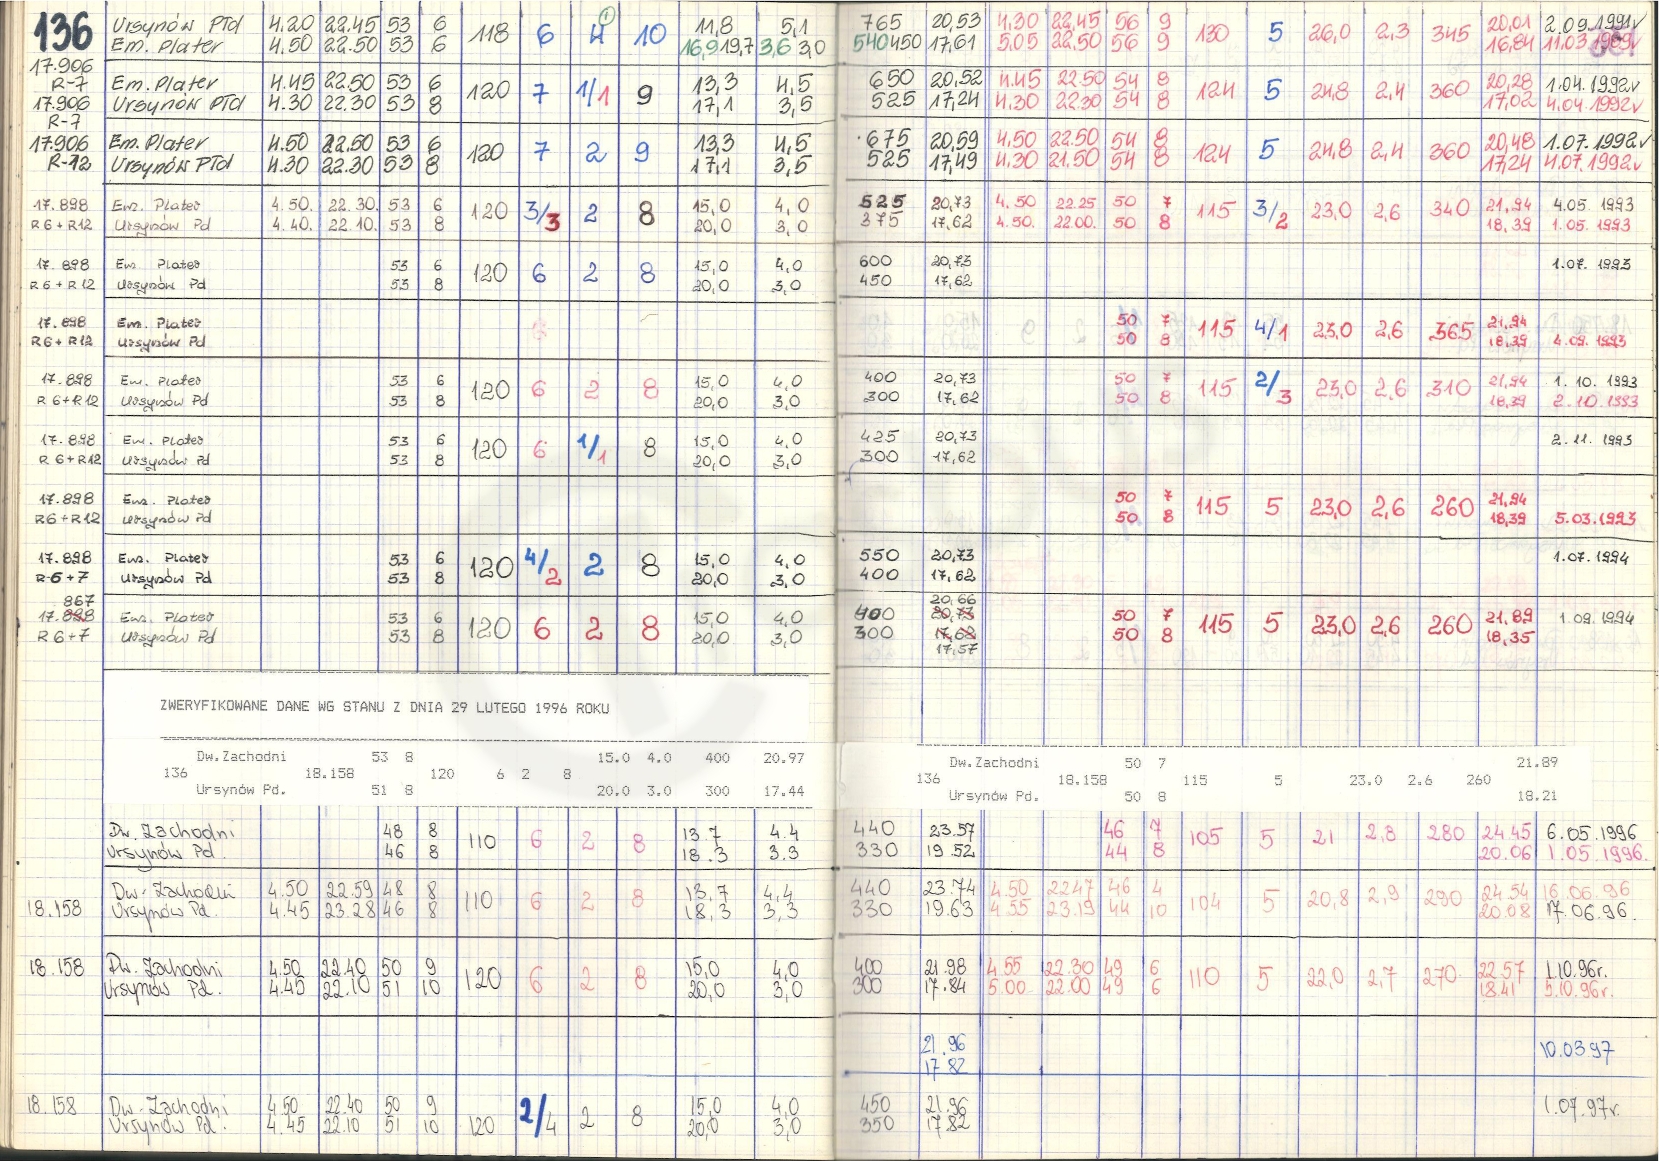 136 Ursynów PTd 4.20 22.45 53 6 118 6 4 10 11,8 5,1 765 20,53 4,30 22,45 56 9 130 5 26,0 2,3 345 20,01 2.09.1991r
Em. Plater 4.50 22.50 53 6 16,9 19,7 3,6 3,0 540 450 17,61 5,05 22,50 56 9 16,84 11.03
17.906 Em. Plater 4.45 22.50 53 6 120 7 1/1 9 13,3 4,5 650 20,52 4.45 22.50 54 8 124 5 24,8 2,4 360 20,28 1.04.1992r
R-7 Ursynów PTd 4.30 22.30 53 8 17,1 3,5 525 17,24 4,30 22.30 54 8 17,02 4.04.1992r
17.906
R-7
17.906 Em. Plater 4.50 22.50 53 6 120 7 2 9 13,3 4,5 675 20,59 4,50 22.50 54 8 124 5 24,8 2,4 360 20,48 1.07.1992r
R-12 Ursynów PTd 4.30 22.30 53 8 17,1 3,5 525 17,49 4,30 21.50 54 8 17,24 4.07.1992r
17.898 Em. Plater 4.50. 22.30. 53 6 120 3/3 2 8 15,0 4,0 525 20,73 4.50 22.25 50 7 115 3/2 23,0 2,6 340 21,94 4.05.1993
R6+R12 Ursynów Pd 4.40. 22.10. 53 8 20,0 3,0 375 17,62 4.50. 22.00. 50 8 18,39 1.05.1993
17.898 Em. Plater 53 6 120 6 2 8 15,0 4,0 600 20,73 1.07.1993
R6+R12 Ursynów Pd 53 8 20,0 3,0 450 17,62
17.898 Em. Plater 50 7 115 4/1 23,0 2,6 365 21,94
R6+R12 Ursynów Pd 50 8 18,39 4.09.1993
17.898 Em. Plater 53 6 120 6 2 8 15,0 4,0 400 20,73 50 7 115 2/3 23,0 2,6 310 21,94 1.10.1993
R6+R12 Ursynów Pd 53 8 20,0 3,0 300 17,62 50 8 18,39 2.10.1993
17.898 Em. Plater 53 6 120 6 1/1 8 15,0 4,0 425 20,73 2.11.1993
R6+R12 Ursynów Pd 53 8 20,0 3,0 300 17,62
17.898 Em. Plater 50 7 115 5 23,0 2,6 260 21,94
R6+R12 Ursynów Pd 50 8 18,39 5.03.1993
17.898 Em. Plater 53 6 120 4/2 2 8 15,0 4,0 550 20,73 1.07.1994
R-6+7 Ursynów Pd 53 8 20,0 3,0 400 17,62
867 20,66
17.898 Em. Plater 53 6 120 6 2 8 15,0 4,0 400 20,73 50 7 115 5 23,0 2,6 260 21,89 1.09.1994
R6+7 Ursynów Pd 53 8 20,0 3,0 300 17,62 50 8 18,35
17,57
ZWERYFIKOWANE DANE WG STANU Z DNIA 29 LUTEGO 1996 ROKU
Dw.Zachodni 53 8 15.0 4.0 400 20.97 Dw.Zachodni 50 7 21.89
136 18.158 120 6 2 8 136 18.158 115 5 23.0 2.6 260
Ursynów Pd. 51 8 20.0 3.0 300 17.44 Ursynów Pd. 50 8 18.21
Dw. Zachodni 48 8 110 6 2 8 13.7 4.4 440 23.57 46 7 105 5 21 2,8 280 24.45 6.05.1996
Ursynów Pd. 46 8 18.3 3.3 330 19.52 44 8 20.06 1.05.1996.
Dw. Zachodni 4.50 22.59 48 8 110 6 2 8 13,7 4,4 440 23.74 4.50 22.47 46 4 104 5 20,8 2,9 290 24.54 16.06.96
18.158 Ursynów Pd. 4.45 23.28 46 8 18,3 3,3 330 19.63 4.55 23.19 44 10 20.08 17.06.96.
18.158 Dw. Zachodni 4.50 22.40 50 9 120 6 2 8 15,0 4,0 400 21.98 4.55 22.30 49 6 110 5 22,0 2,7 270 22.57 1.10.96r.
Ursynów Pd. 4.45 22.10 51 10 20,0 3,0 300 17.84 5.00 22.00 49 6 18.41 5.10.96r.
21.96 10.03.97
17.82
18.158 Dw. Zachodni 4.50 22.40 50 9 120 2/4 2 8 15,0 4,0 450 21.96 1.07.97r.
Ursynów Pd. 4.45 22.10 51 10 20,0 3,0 350 17.82